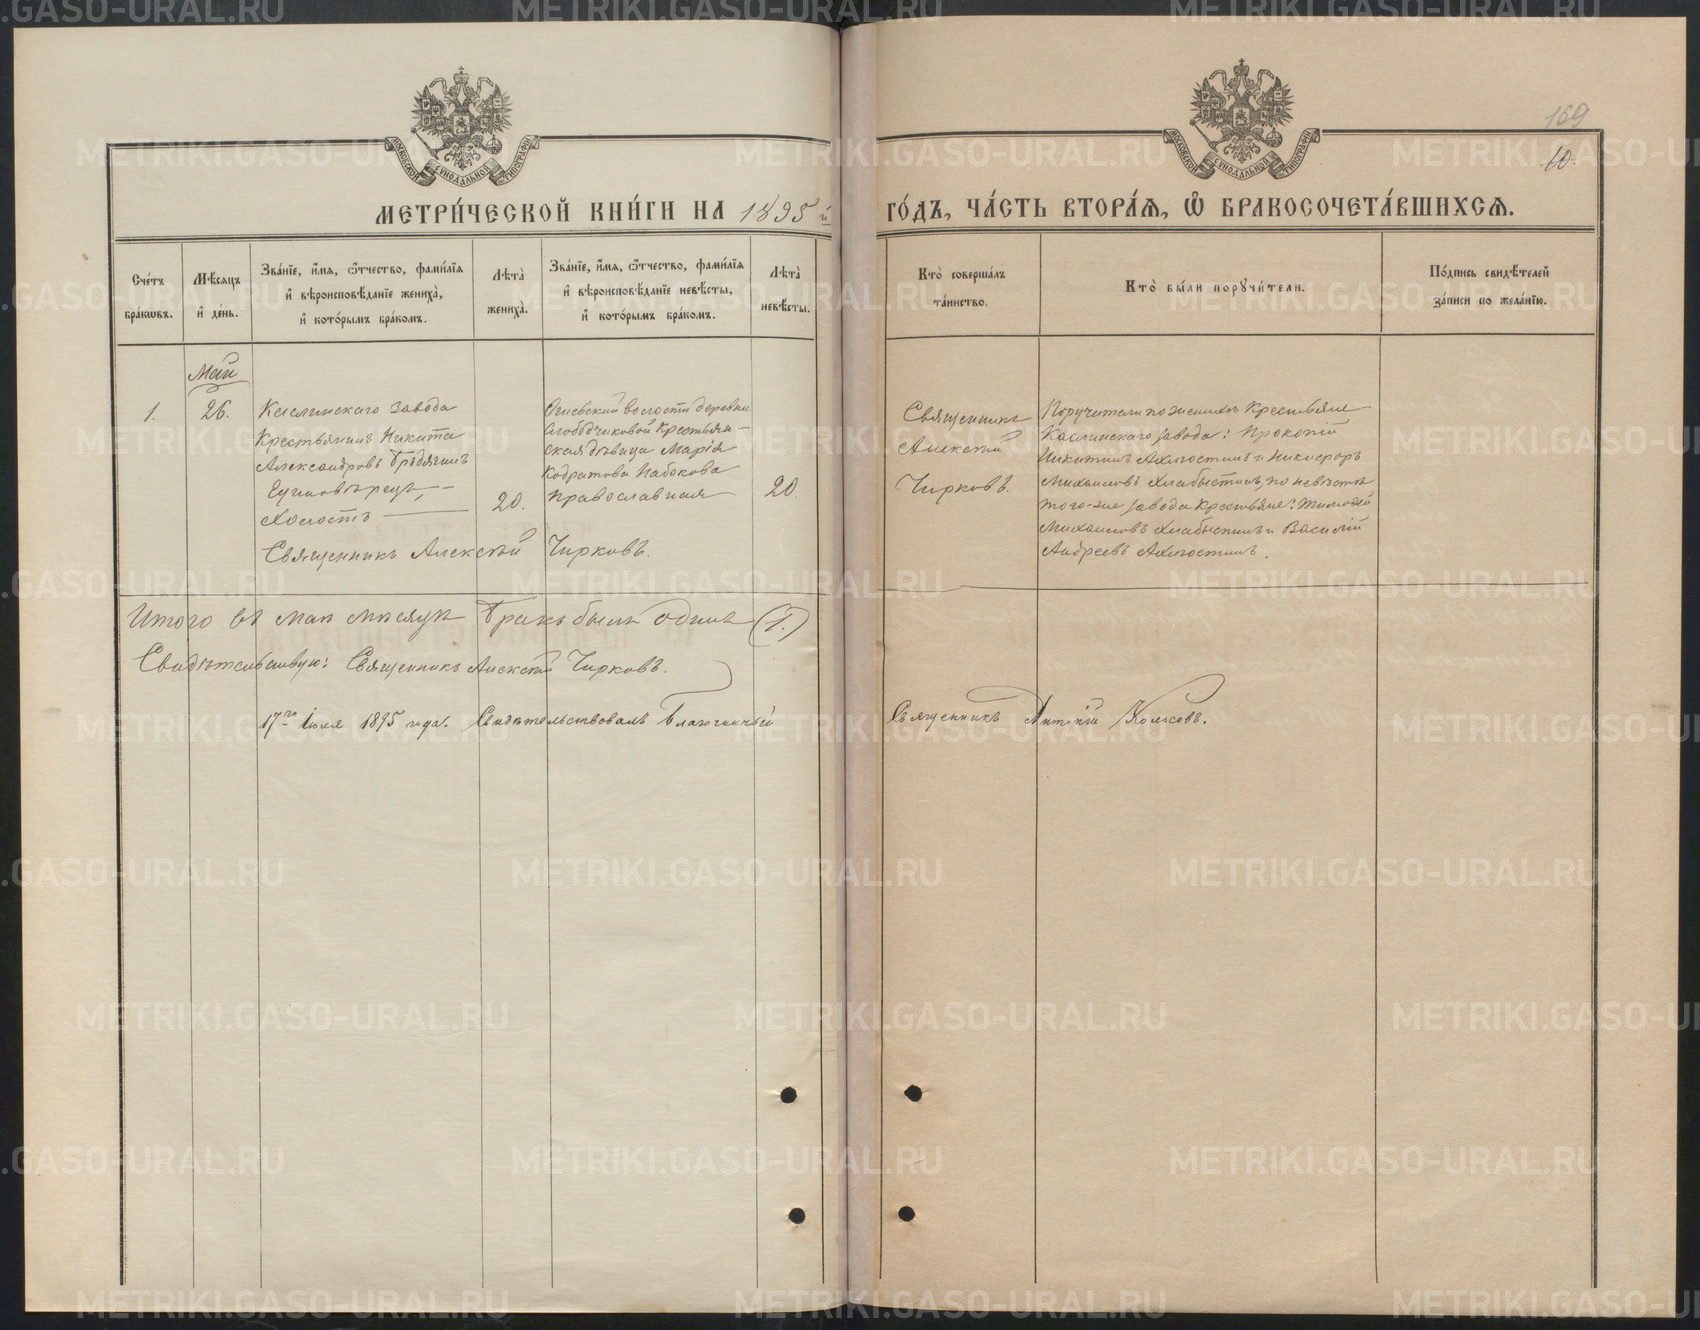 169
10.
МОСКОВСКОЙ СѴНОДАЛЬНОЙ ТИПОГРАФІИ
МОСКОВСКОЙ СѴНОДАЛЬНОЙ ТИПОГРАФІИ
МЕТРИ́ЧЕСКОЙ КНИ́ГИ НА 1895 й ГО́ДЪ, ЧА́СТЬ ВТОРА́Я, Ѡ҆ БРАКОСОЧЕТА́ВШИХСЯ.
Сче́тъ бра́кѡвъ.
Мѣ́сяцъ и҆ де́нь.
Зва́нїе, и҆́мя, ѻ҆́тчество, фами́лїя и҆ вѣроисповѣ́данїе жениха̀, и҆ кото́рымъ бра́комъ.
Лѣ́та жениха̀.
Зва́нїе, и҆́мя, ѻ҆́тчество, фами́лїя и҆ вѣроисповѣ́данїе невѣ́сты, и҆ кото́рымъ бра́комъ.
Лѣ́та невѣ́сты.
Кто̀ соверша́лъ та́инство.
Кто̀ бы́ли порꙋчи́тели.
По́дпись свидѣ́телей за́писи по жела́нїю.
Май
1.
26.
Каслинскаго завода
Крестьянинъ Никита
Александровъ Бродягинъ
Единовѣрецъ,
Холостъ
20.
Огневской волости деревни
Слободчиковой Крестьян-
ская дѣвица Марія
Кодратова Набокова
православная
20.
Священникъ Алексѣй Чирковъ.
Священникъ
Алексѣй
Чирковъ.
Поручители по женихѣ Крестьяне
Каслинскаго завода: Прокопій
Никитинъ Ахлюстинъ и Никифоръ
Михаиловъ Хлабыстинъ, по невѣстѣ
того-же завода Крестьяне: Тимофей
Михаиловъ Хлабыстинъ и Василій
Андреевъ Ахлюстинъ.
Итого въ маѣ мѣсяцѣ бракъ былъ одинъ (1.)
Свидѣтельствую: Священникъ Алексѣй Чирковъ.
17го Іюля 1895 года. Свидѣтельствовалъ Благочинный Священникъ Антоній Колосовъ.
METRIKI.GASO-URAL.RU